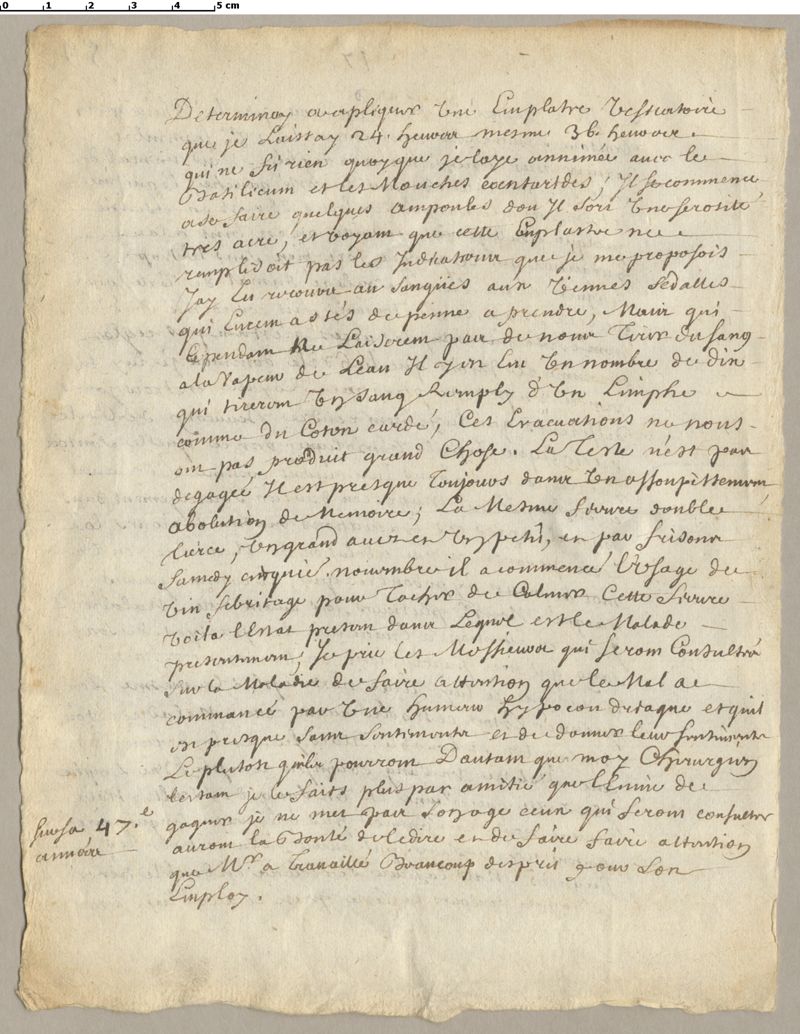 0 1 2 3 4 5 cm
Determinay a apliquer Une Emplatre Vesicatoire
que je Laissay 24. heures mesme 36. heures
qui ne fit rien quoyque je laye annimée avec le
Basilicum et les Mouches cantarides; Il se commence
a se faire quelques ampoules dou Il sort Une serosité
tres acre, et voyant que cette Emplastre ne
remplissoit pas les Indications que je me proposois
Jay Eu recours au sangsues aux Veines
qui Eurent assés de penne a prendre, Mais qui
Cependant Ne Laiserent pas de nous Tirer du sang
a la Vapeur de Leau Il y en Eut Un nombre de dix
qui tirerent Un sang Remply d'Un Limphe
comme du Coton cardé, Ces Evacuations ne nous
ont pas produit grand Chose. La Teste n'est pas
degagée Il est presque Toujours dans Un assoupissement
abolition de Memoire; La Mesme fievre double
tierce, Un grand acces et Un petit, et par frisons
Samedy cinquie. novembre il a commencé L'Usage du
Vin febrifuge pour Tacher de Calmer Cette fievre
Voila l'Estat present dans Lequel est le Malade
presentement, Je prie les Messieurs qui seront Consultés
sur la Maladie de faire attention que le Mal a
commancé par Une humeur hypocondriaque et quil
est presque sans sentiments et de donner leurs sentiments
Le plutost quils pourront Dautant que moy Chirurgien
traitant je le faits plus par amitié que l'Envie de
gagner je ne met pas son age ceux qui seront consulter
auront la Bonté de le dire et de faire faire attention
que Mr. a Travaillé Beaucoup desprit pour Son
Employ.
sur sa 47.e
année